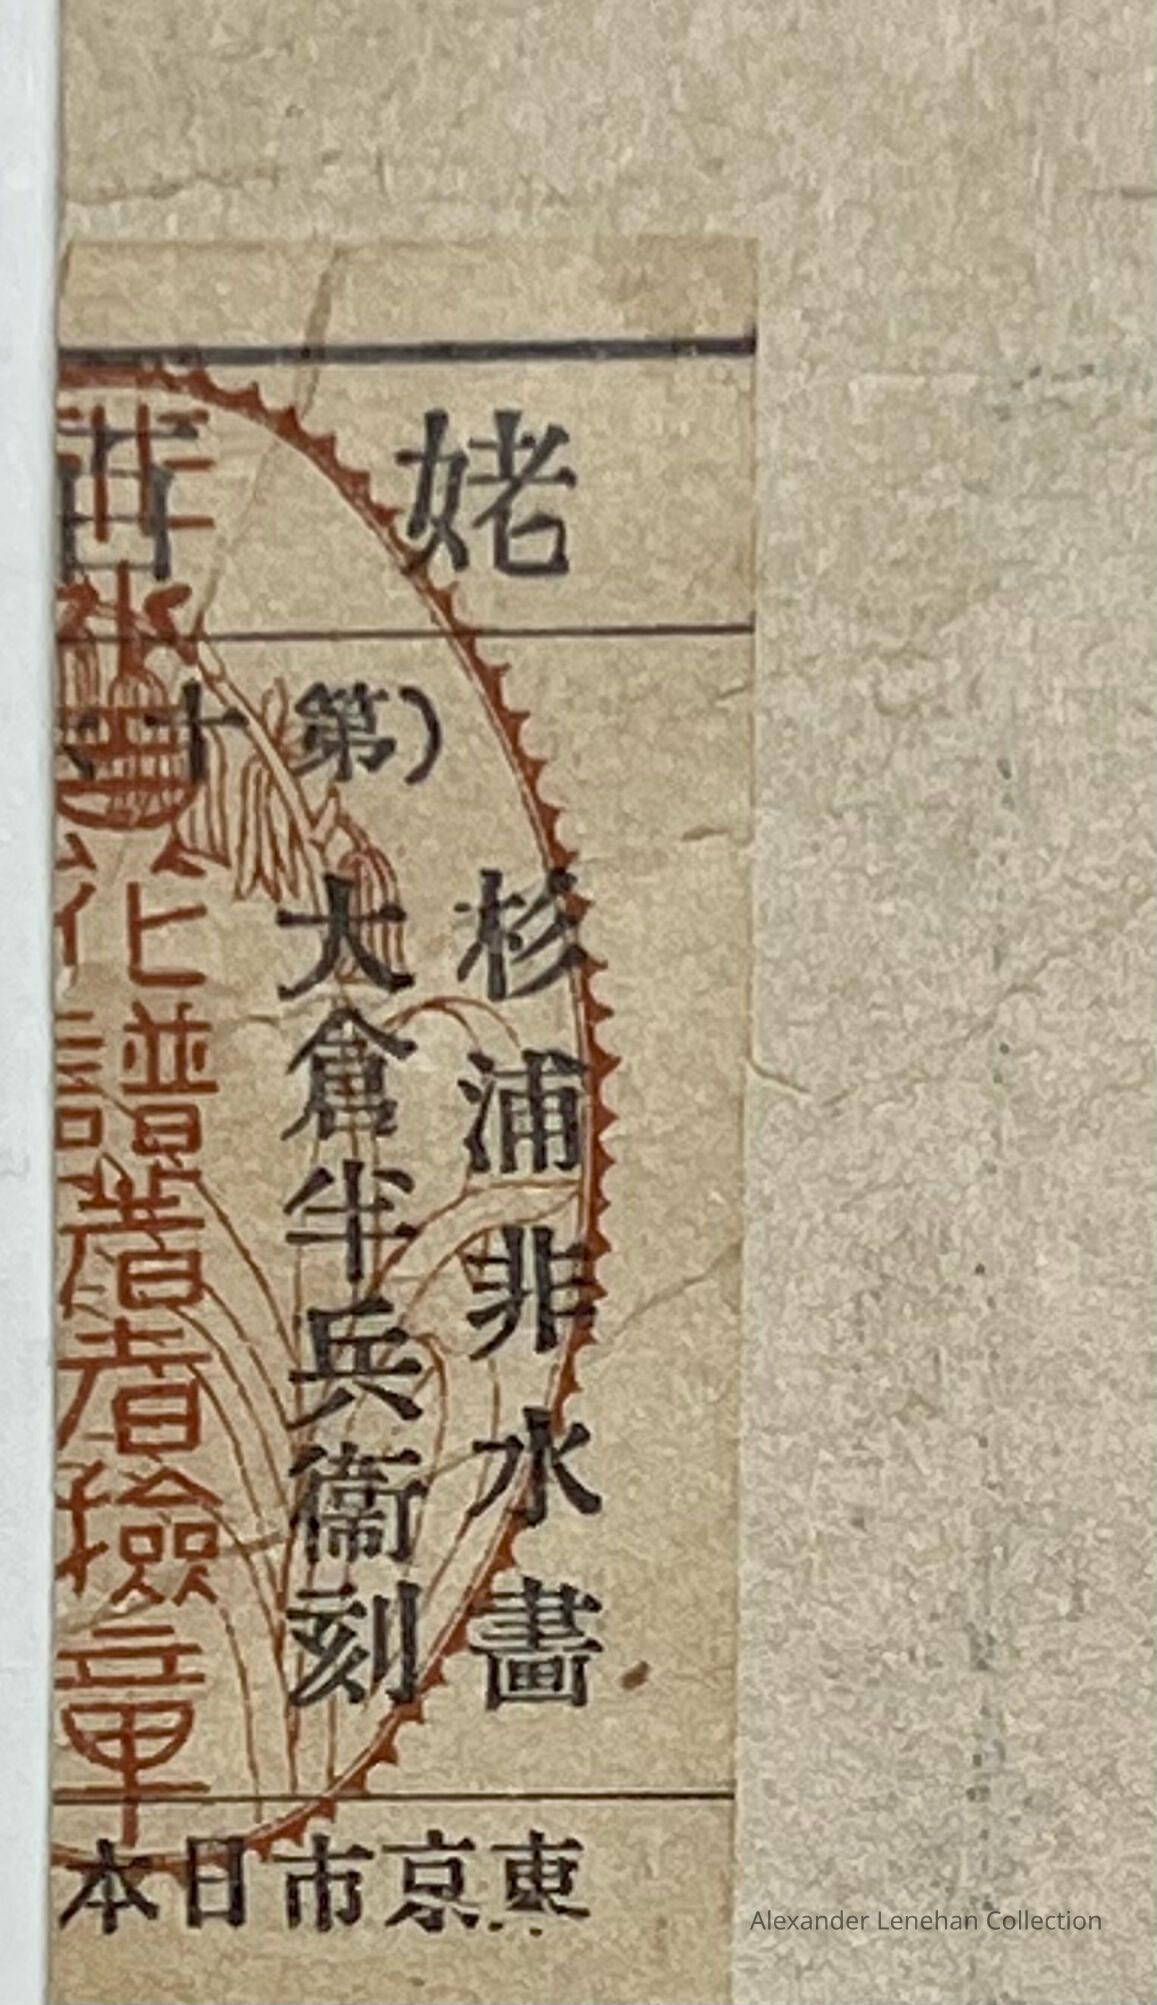 姥百
(第十
杉浦非水畫
大倉半兵衞刻
東京市日本
非水百花譜著者檢章
Alexander Lenehan Collection